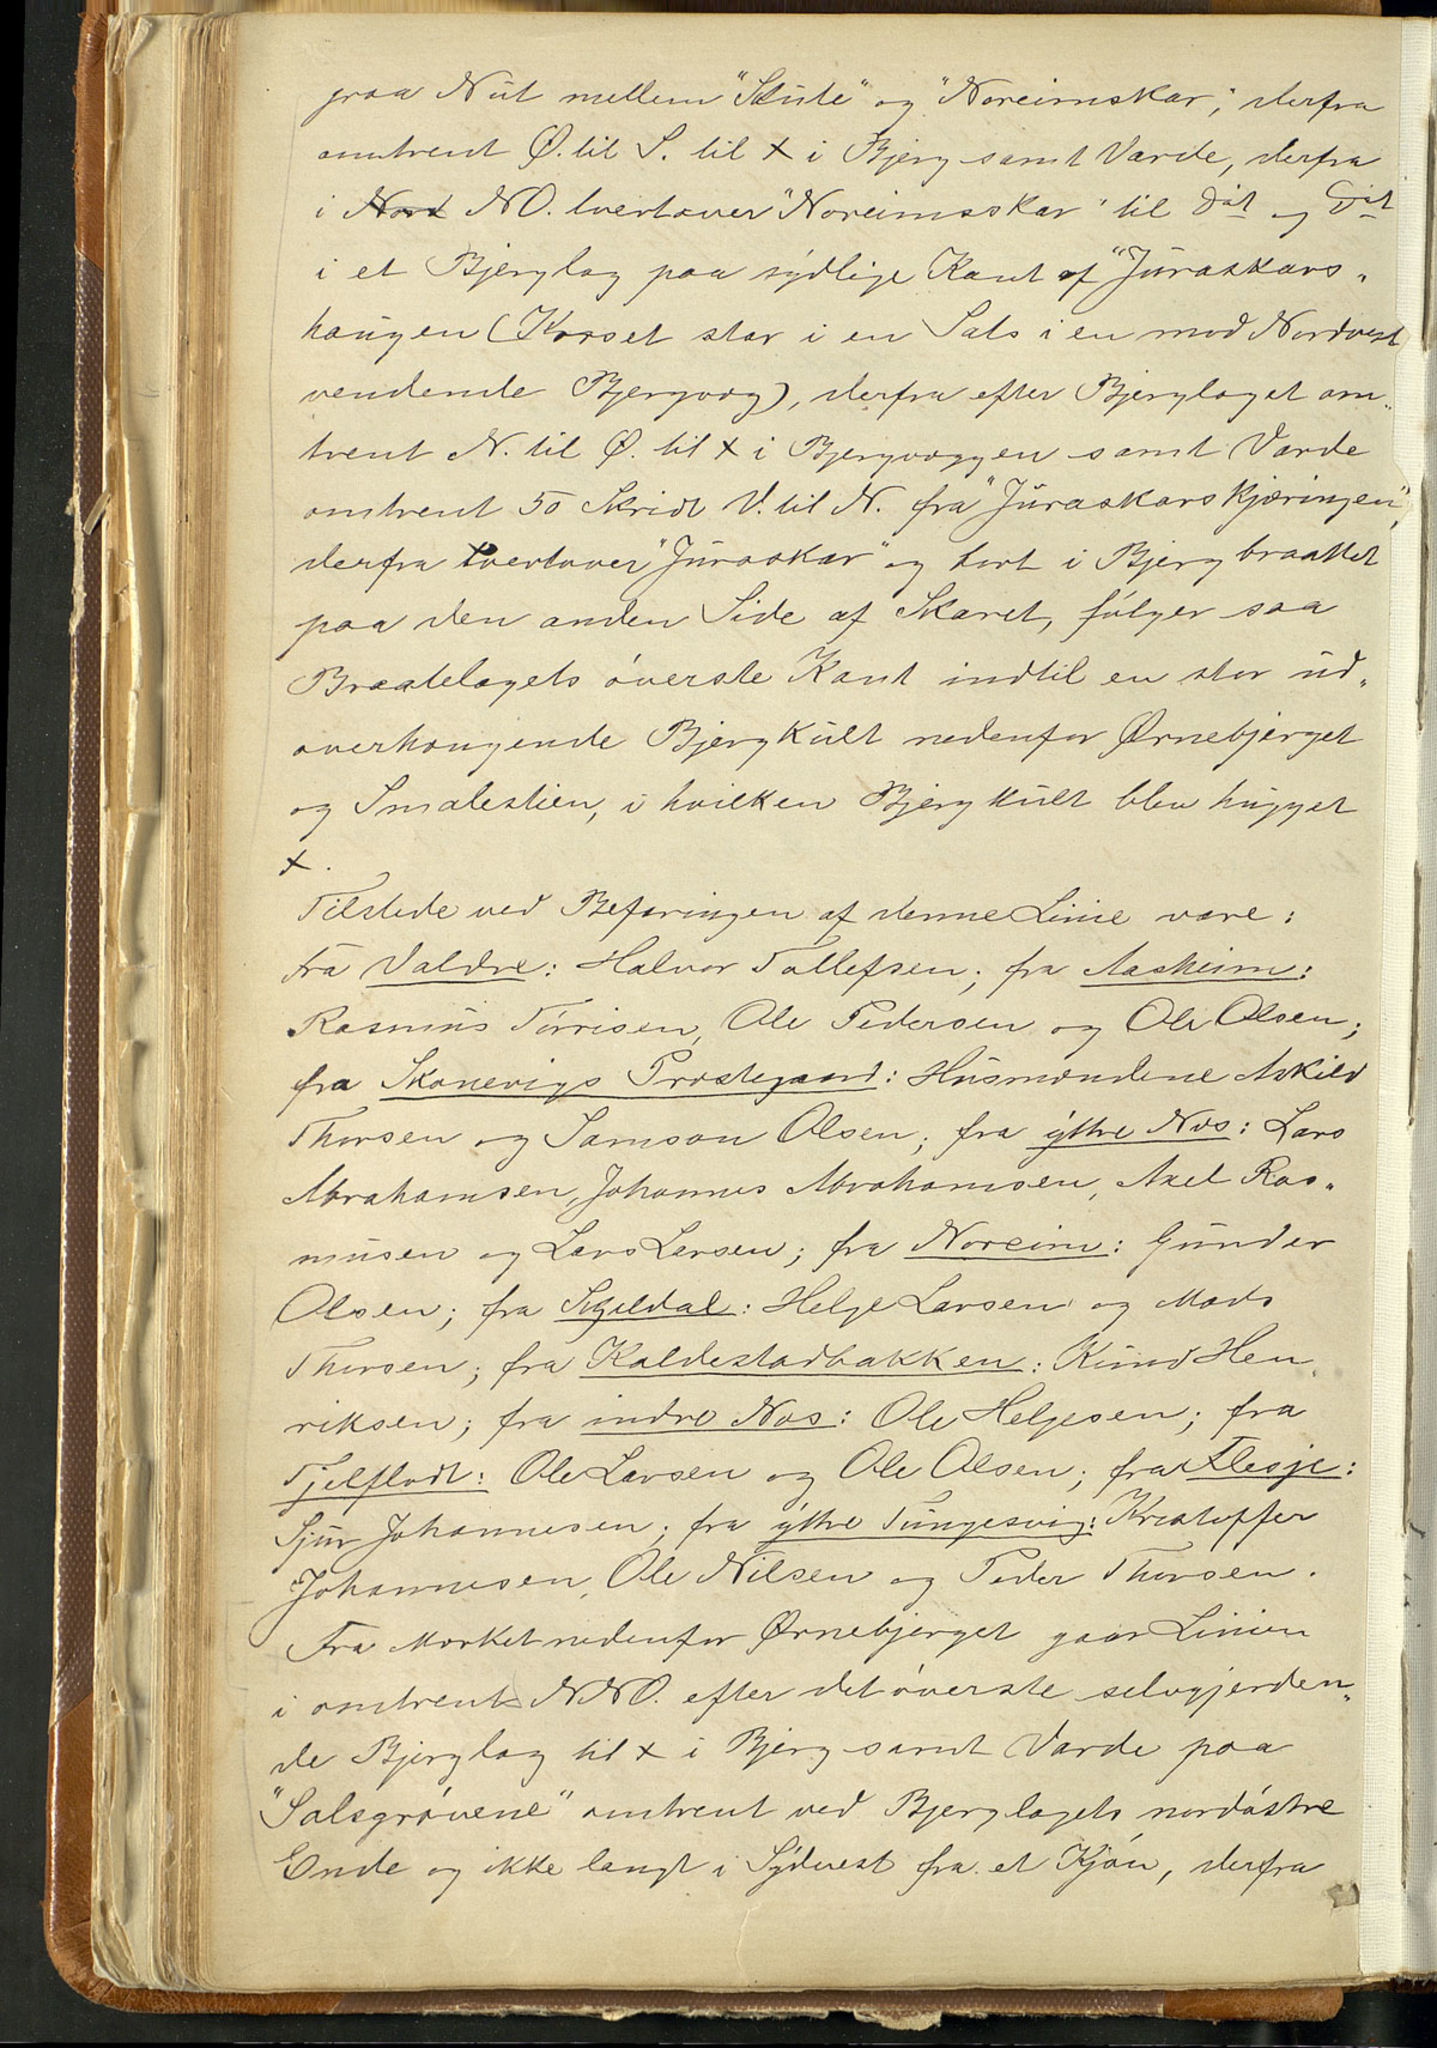 paa Nut mellem "Skute" og "Noreimskar", derfra
omtrent Ø. til S. til x i Bjerg samt Varde, derfra
i Nord NO. tvertover "Noreimsskar" til Dat og Dat
i et Bjerglag paa sydlige Kant af "Juraskars-
haugen (Korset star i en Sats i en mod Nordvest
vendende Bjergvæg), derfra efter Bjerglaget om-
trent N. til Ø. til x i Bjergvæggen samt Varde
omtrent 50 Skridt V. til N. fra "Juraskarskjæringen",
derfra tvertover "Juraskar" og bort i Bjergbraattet
paa den anden Side af Skaret, følger saa
Braatelagets øverste Kant indtil en stor ud-
overhængende Bjergkult nedenfor Ørnebjerget
og Smalestien, i hvilken Bjergkult blev hugget
x.
Tilstede ved Befaringen af denne Linie vare:
Fra Valdre: Halvor Tollefsen; fra Aasheim:
Rasmus Tørrisen, Ole Pedersen og Ole Olsen;
fra Skonevigs Prostegaard: Husmændene Askild
Thorsen og Samson Olsen; fra ytre Næs: Lars
Abrahamsen, Johannes Abrahamsen, Axel Ras-
musen og Lars Larsen; fra Noreim: Gunder
Olsen; fra Skjeldal: Helge Larsen og Mads
Thorsen; fra Kaldestadbakken: Knud Hen-
riksen; fra indre Næs: Ole Helgesen; fra
Tjelflodt: Ole Larsen og Ole Olsen; fra Flesje:
Sjur Johannesen; fra ytre Tungesvig: Kristoffer
Johannesen, Ole Nilsen og Peder Thorsen.
Fra Mærket nedenfor Ørnebjerget gaar Linien
i omtrent NNO. efter det øverste selvgjerden-
de Bjerglag til x i Bjerg samt Varde paa
"Salsgrøvene" omtrent ved Bjerglagets nordøstre
Ende og ikke langt i Sydvest fra et Kjøn, derfra